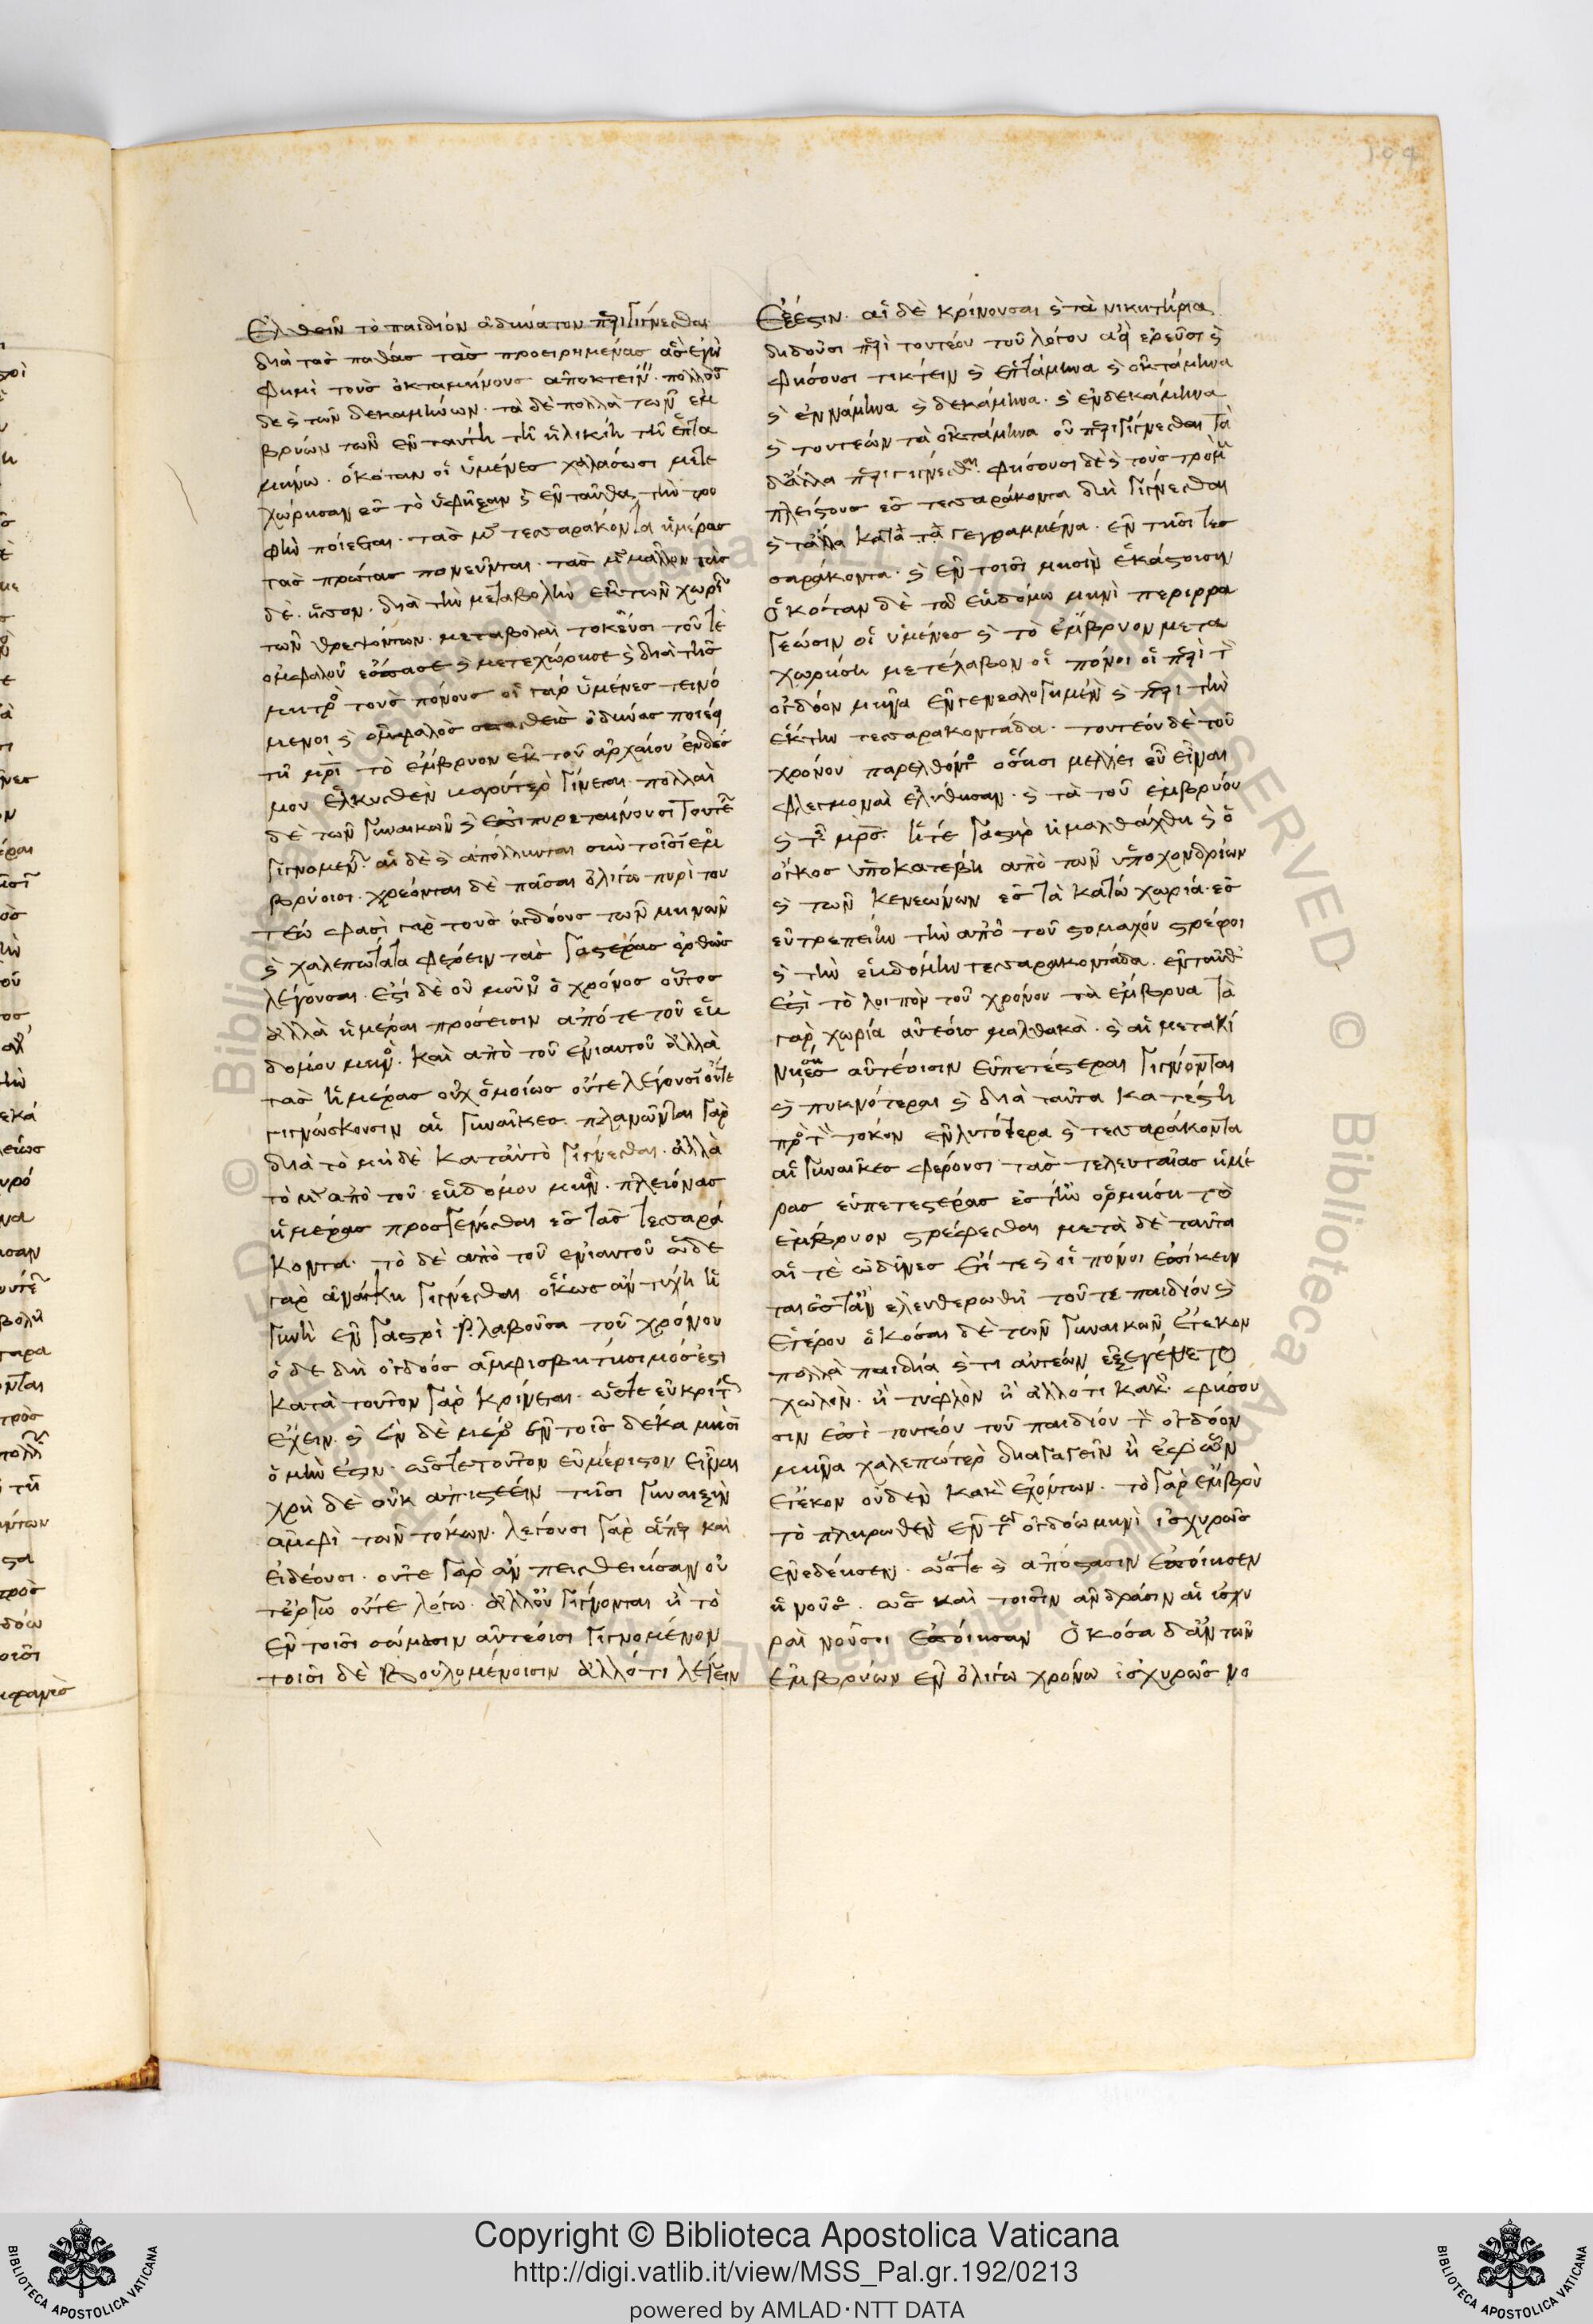 104
Ἐλθεῖν τὸ παιδίον ἀδύνατον περιγίνεσθαι
διὰ τὰς πάθας τὰς προειρημένας ἃς ἐγὼ
φημὶ τοὺς ὀκταμήνους ἀποκτείν· πολλοὺς
δὲ καὶ τῶν δεκαμήνων· τὰ δὲ πολλὰ τῶν ἐμ
βρύων τῶν ἐν ταύτη τῆ ἡλικίη τῆ ἑπτα
μήνω· ὁκόταν οἱ ὑμένες χαλάσωσι μετε
χώρησαν ἐς τὸ ὑεῖξαν καὶ ἐνταῦθα τὴν τρο
φὴν ποίεται· τὰς μὲν τεσσαράκοντα ἡμέρας
τὰς πρώτας πονεῦνται· τὰς μὲν μᾶλλον τὰς
δὲ ἧσσον· διὰ τὴν μεταβολὴν ἐκ τῶν χωρίων
τῶν θρεψόντων· μεταβολαὶ τοκεῦσι τοῦ τε
ὀμφαλοῦ ἔσπασε καὶ μετεχώρησε καὶ διὰ τῆς
μητρὸς τοὺς πόνους οἱ γὰρ ὑμένες τεινό
μενοι καὶ ὀμφαλὸς σπασθεὶς ὀδύνας ποιέει
τῆ μητρὶ τὸ ἔμβρυον ἐκ τοῦ ἀρχαίου ἐνδέσ
μου ἑλκυσθὲν βαρύτερον γίνεται· πολλαὶ
δὲ τῶν γυναικῶν καὶ ἐπιπυρεταίνουσι τουτέων
γιγνομένων· αἱ δὲ καὶ ἀπόλλυνται σὺν τοῖσι ἐμ
βρύοισι· χρέονται δὲ πᾶσαι ὀλίγω πυρὶ του
τέω φασὶ γὰρ τοὺς ὀγδόους τῶν μηνῶν
καὶ χαλεπώτατα φέρειν τὰς γαστέρας ὀρθῶς
λέγουσαι· ἐστὶ δὲ οὐ μοῦνον ὁ χρόνος οὗτος
ἀλλὰ ἡμέραι πρόσεισιν ἀπό τε τοῦ ἑβ
δόμου μηνὸς· καὶ ἀπὸ τοῦ ἐνιαυτοῦ ἀλλὰ
τὰς ἡμέρας οὐχ ὁμοίως οὔτε λέγουσι οὔτε
γιγνώσκουσιν αἱ γυναῖκες· πλανῶνται γὰρ
διὰ τὸ μὴ δὲ κατ' αὐτὸ γίγνεσθαι· ἀλλὰ
τὸ μὲν ἀπὸ τοῦ ἑβδόμου μηνὸς· πλείονας
ἡμέρας προσγενέσθαι ἐς τὰς τεσσαρά
κοντα· τὸ δὲ ἀπὸ τοῦ ἐνιαυτοῦ ὧδε
γὰρ ἀνάγκη γίγνεσθαι ὅκως ἂν τύχη ἡ
γυνὴ ἐν γαστρὶ λαβοῦσα τοῦ χρόνου
ὁ δὲ δὴ ὄγδοος ἀμφισβητήσιμός ἐστι
κατὰ τοῦτον γὰρ κρίνεται· ὥστε εὔκριτον
ἔχειν· καὶ ἓν δὲ μέρος ἐν τοῖς δέκα μησὶ
ὁ μὴν ἔστιν· ὥστε τοῦτον εὐμέριστον εἶναι
χρὴ δὲ οὐκ ἀπιστέειν τῆσι γυναιξὶν
ἀμφὶ τῶν τόκων· λέγουσι γὰρ ἅπερ καὶ
εἰδέουσι· οὔτε γὰρ ἂν πεισθείησαν οὐ
τ' ἔργω οὔτε λόγω· ἀλλ' οὖν γίγνονται ἢ τὸ
ἐν τοῖσι σώμασιν αὐτέοισι γιγνομένον
τοῖσι δὲ βουλομένοισιν ἄλλό τι λέγειν
Ἔξεστιν· αἱ δὲ κρίνουσαι καὶ τὰ νικητήρια
διδοῦσι περὶ τουτέου τοῦ λόγου ἀεὶ ἐρεῦσι καὶ
φήσουσι τίκτειν καὶ ἑπτάμηνα καὶ ὀκτάμηνα
καὶ ἐννάμηνα καὶ δεκάμηνα· καὶ ἑνδεκάμηνα
καὶ τουτέων τὰ ὀκτάμηνα οὐ περιγίγνεσθαι τὰ
δ' ἄλλα περιγίγνεσθαι· φήσουσι δὲ καὶ τοὺς τρωμοὺς
πλείστους ἐς τεσσαράκοντα δὴ γίγνεσθαι
καὶ τἄλλα κατὰ τὰ γεγραμμένα· ἐν τῆσι τεσ
σαράκοντα· καὶ ἐν τοῖσι μησὶν ἑκάστοισιν
Ὁκόταν δὲ τῶ ἑβδόμω μηνὶ περιρρα
γέωσιν οἱ ὑμένες καὶ τὸ ἔμβρυον μετα
χωρήση μετέλαβον οἱ πόνοι οἱ περὶ τὸν
ὄγδοον μῆνα ἐνγενεαλογημένον καὶ περὶ τὴν
ἕκτην τεσσαρακοντάδα· τουτέου δὲ τοῦ
χρόνου παρελθόντος ὅσησι μέλλει εὖ εἶναι
φλεγμοναὶ ἐλύθησαν· καὶ τὰ τοῦ ἐμβρύου
καὶ τῆς μητρός· ἥ τε γαστὴρ ἡ μαλθάχθη καὶ ὁ
ὄγκος ὑποκατέβη ἀπὸ τῶν ὑποχονδρίων
καὶ τῶν κενεώνων ἐς τὰ κάτω χωρία· ἐς
εὐτρεπείην τὴν ἀπὸ τοῦ στομάχου στρέφοι
καὶ τὴν ἑβδόμην τεσσαρακοντάδα· ἐνταῦθα
ἐστὶ τὸ λοιπὸν τοῦ χρόνου τὰ ἔμβρυα τὰ
γὰρ χωρία αὐτέοις μαλθακὰ· καὶ αἱ μετακι
νήσιες αὐτέοισιν εὐπετέστεραι γίγνονται
καὶ πυκνότεραι καὶ διὰ ταῦτα κατέστη
πρὸς τὸν τόκον ἐνλυτότερα καὶ τεσσαράκοντα
αἱ γυναῖκες φέρουσι τὰς τελευταίας ἡμέ
ρας εὐπετεστέρας ἔστ' ἂν ὁρμήση τὸ
ἔμβρυον στρέφεσθαι μετὰ δὲ ταῦτα
αἵ τε ὠδῖνες ἔτι τε καὶ οἱ πόνοι ἐπίκειν
ται ἔστ' ἂν ἐλευθερωθῆ τοῦ τε παιδίου καὶ
ἑτέρου ὁκόσαι δὲ τῶν γυναικῶν ἔτεκον
πολλὰ παιδία καί τι αὐτέων ἐξεγένετο
χωλὸν· ἢ τυφλὸν ἢ ἄλλό τι κακὸν· φήσου
σιν ἐπὶ τουτέου τοῦ παιδίου τὸν ὄγδοον
μῆνα χαλεπώτερον διαγαγεῖν ἢ ἐφ' ὧν
ἔτεκον οὐδὲν κακὸν ἐχόντων· τὸ γὰρ ἔμβρυον
τὸ πληρωθὲν ἐν τῶ ὀγδόω μηνὶ ἰσχυρῶς
ἐνεδέησεν· ὥστε καὶ ἀπόστασιν ἐποίησεν
ἡ νοῦσος· ὡς καὶ τοῖσιν ἀνδράσιν αἱ ἰσχυ
ραὶ νοῦσοι ἐποίησαν Ὁκόσα δ' ἂν τῶν
ἐμβρύων ἐν ὀλίγω χρόνω ἰσχυρῶς νο
© Biblioteca Apostolica Vaticana
ALL RIGHTS RESERVED
Copyright © Biblioteca Apostolica Vaticana
http://digi.vatlib.it/view/MSS_Pal.gr.192/0213
powered by AMLAD·NTT DATA
BIBLIOTECA APOSTOLICA VATICANA
BIBLIOTECA APOSTOLICA VATICANA